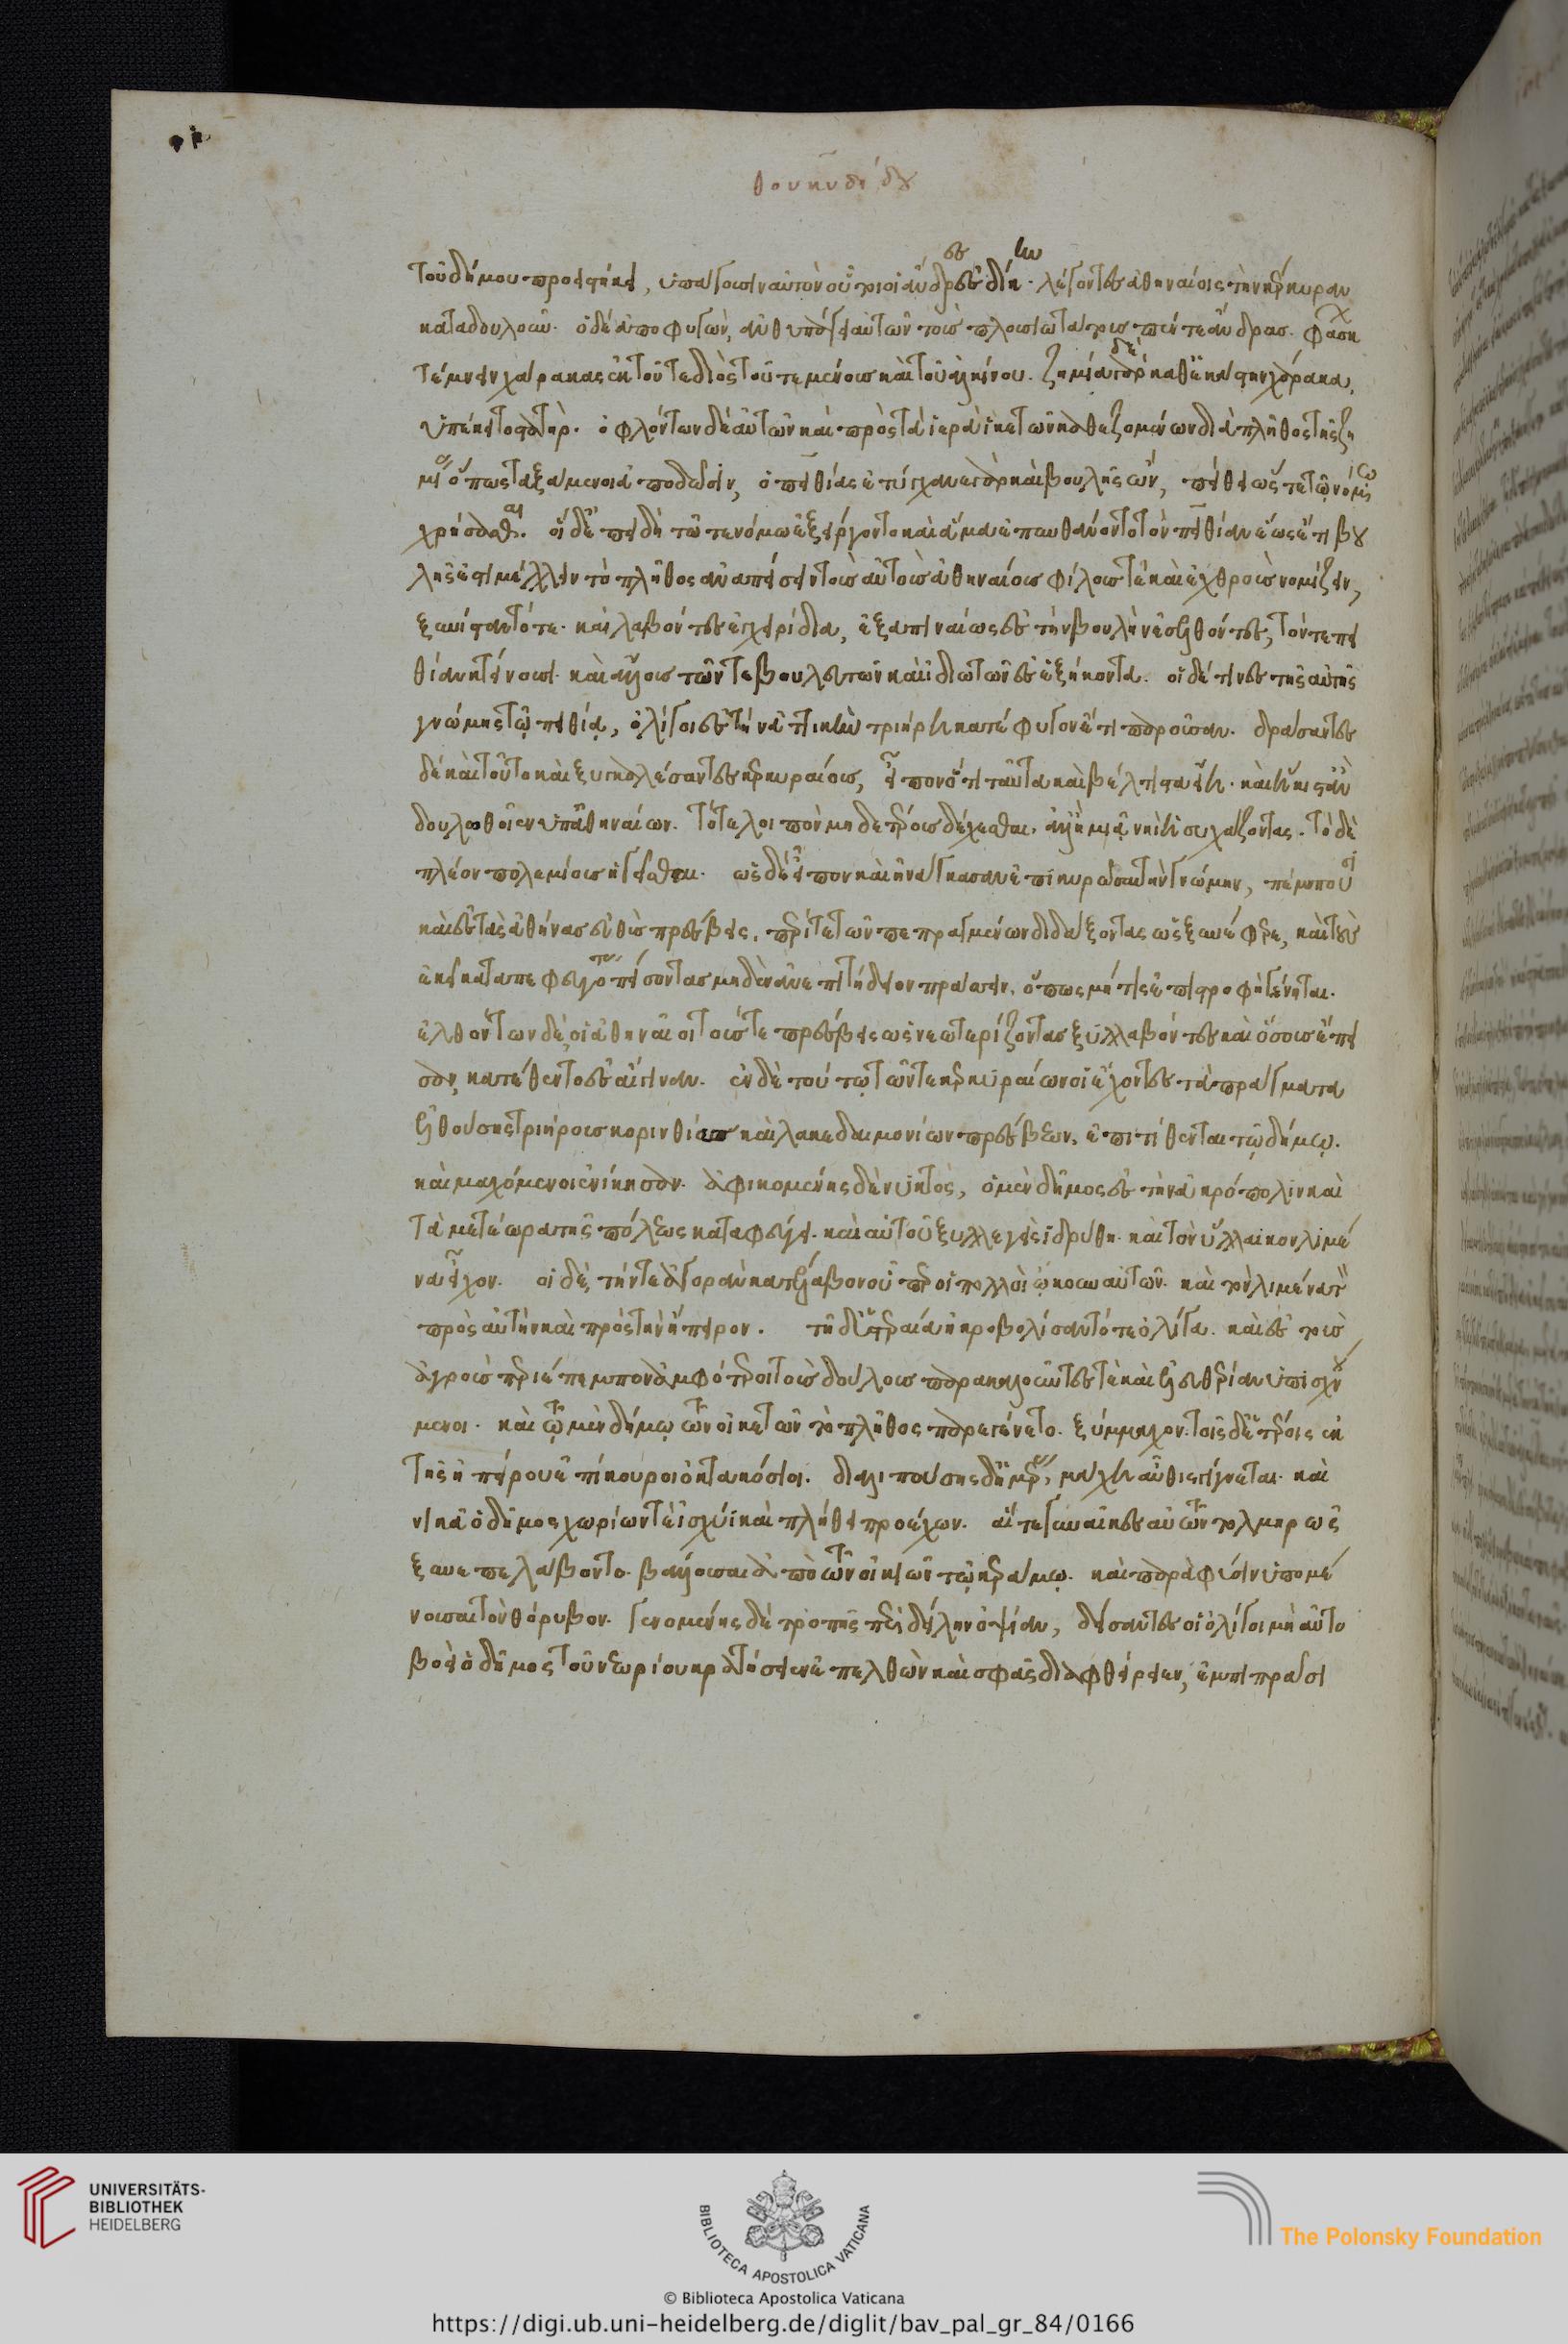 θουκυδίδου
τοῦ δήμου προειστήκει, ὑπάγουσιν αὐτὸν οὗτοι οἱ ἄνδρες ἐς δίκην· λέγοντες ἀθηναίοις τὴν κέρκυραν
καταδουλοῦν. ὁ δὲ ἀποφυγὼν, ἀνθυπάγει αὐτῶν τοὺς πλουσιωτάτους πέντε ἄνδρας. φάσκων
τέμνειν χάρακας ἐκ τοῦ τε διὸς τοῦ τεμένους καὶ τοῦ ἀλκίνου. ζημία δὲ καθ' ἑκάστην χάρακα,
ὑπέκειτο στατήρ. ὀφλόντων δὲ αὐτῶν καὶ πρὸς τὰ ἱερὰ ἱκετῶν καθεζομένων διὰ πλῆθος τῆς ζη
μίας ὅπως ταξάμενοι ἀποδῶσιν, ὁ πειθίας ἐτύγχανε γὰρ καὶ βουλῆς ὤν, πείθει ὥστε τῷ νόμῳ
χρήσασθαι. οἱ δ' ἐπειδὴ τῷ τε νόμῳ ἐξείργοντο καὶ ἅμα ἐπυνθάνοντο τὸν πειθίαν ἕως ἔτι βου
λῆς ἐστι μέλλειν τὸ πλῆθος ἀναπείσειν τοὺς αὐτοὺς ἀθηναίοις φίλους τε καὶ ἐχθροὺς νομίζειν,
ξυνίσταντό τε. καὶ λαβόντες ἐγχειρίδια, ἐξαπιναίως ἐς τὴν βουλὴν ἐσελθόντες, τόν τε πει
θίαν κτείνουσι. καὶ ἄλλους τῶν τε βουλευτῶν καὶ ἰδιωτῶν ἐς ἑξήκοντα. οἱ δέ τινες τῆς αὐτῆς
γνώμης τῷ πειθίᾳ, ὀλίγοι ἐς τὴν ἀττικὴν τριήρη κατέφυγον ἔτι παροῦσαν. δράσαντες
δὲ καὶ τοῦτο καὶ ξυγκαλέσαντες κερκυραίους, εἶπον ὅτι ταῦτα καὶ βέλτιστα εἴη. καὶ ἥκιστ' ἂν
δουλωθεῖεν ὑπ' ἀθηναίων. τό τε λοιπὸν μηδετέρους δέχεσθαι, ἀλλ' ἢ μιᾷ νηὶ ἡσυχάζοντας. τὸ δὲ
πλέον πολεμίους ἡγεῖσθαι. ὡς δὲ εἶπον καὶ ἠνάγκασαν ἐπικυρῶσαι τὴν γνώμην, πέμπουσι
καὶ ἐς τὰς ἀθήνας εὐθὺς πρέσβεις, περί τε τῶν πεπραγμένων διδάξοντας ὡς ξυνέφερε, καὶ τοὺς
ἐκεῖ καταπεφευγότας πείσοντας μηδὲν ἀνεπιτήδειον πράσσειν, ὅπως μή τις ἐπιστροφὴ γένηται.
ἐλθόντων δὲ, οἱ ἀθηναῖοι τούς τε πρέσβεις ὡς νεωτερίζοντας ξυλλαβόντες καὶ ὅσους ἔπει
σαν, κατέθεντο ἐς αἴγιναν. ἐν δὲ τούτῳ τῶν τε κερκυραίων οἱ ἔχοντες τὰ πράγματα
ἐλθούσης τριήρους κορινθίας καὶ λακεδαιμονίων πρέσβεων, ἐπιτίθενται τῷ δήμῳ.
καὶ μαχόμενοι ἐνίκησαν. ἀφικομένης δὲ νυκτὸς, ὁ μὲν δῆμος ἐς τὴν ἀκρόπολιν καὶ
τὰ μετέωρα τῆς πόλεως καταφεύγει. καὶ αὐτοῦ ξυλλεγεὶς ἱδρύθη. καὶ τὸν ὑλλαϊκὸν λιμέ
να εἶχον. οἱ δὲ, τήν τε ἀγορὰν κατέλαβον οὗπερ οἱ πολλοὶ ᾤκουν αὐτῶν. καὶ τὸν λιμένα τὸν
πρὸς αὐτὴν καὶ πρὸς τὴν ἤπειρον. τῇ δ' ὑστεραίᾳ ἠκροβολίσαντό τε ὀλίγα. καὶ ἐς τοὺς
ἀγροὺς περιέπεμπον ἀμφότεροι τοὺς δούλους παρακαλοῦντές τε καὶ ἐλευθερίαν ὑπισχνού
μενοι. καὶ τῷ μὲν δήμῳ τῶν οἰκετῶν τὸ πλῆθος παρεγένετο ξύμμαχον. τοῖς δ' ἑτέροις ἐκ
τῆς ἠπείρου ἐπίκουροι ὀκτακόσιοι. διαλιπούσης δ' ἡμέρας, μάχη αὖθις γίγνεται. καὶ
νικᾷ ὁ δῆμος χωρίων τε ἰσχύϊ καὶ πλήθει προέχων. αἵ τε γυναῖκες αὐτῶν τολμηρῶς
ξυνεπελάβοντο. βάλλουσαι ἀπὸ τῶν οἰκιῶν τῷ κεράμῳ. καὶ παρὰ φύσιν ὑπομέ
νουσαι τὸν θόρυβον. γενομένης δὲ τροπῆς περὶ δείλην ὀψίαν, δείσαντες οἱ ὀλίγοι μὴ αὐτο
βοεὶ ὁ δῆμος τοῦ νεωρίου κρατήσειεν ἐπελθὼν καὶ σφᾶς διαφθείρειεν, ἐμπιπρᾶσι
UNIVERSITÄTS-
BIBLIOTHEK
HEIDELBERG
BIBLIOTECA APOSTOLICA VATICANA
The Polonsky Foundation
© Biblioteca Apostolica Vaticana
https://digi.ub.uni-heidelberg.de/diglit/bav_pal_gr_84/0166